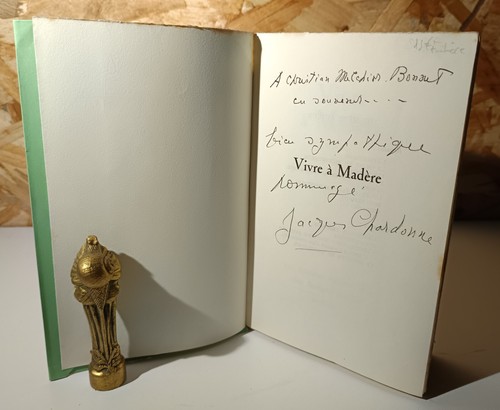 A Christian
en souvenir - - - -
bien sympathique
Vivre à Madère
hommage
Jacques Chardonne